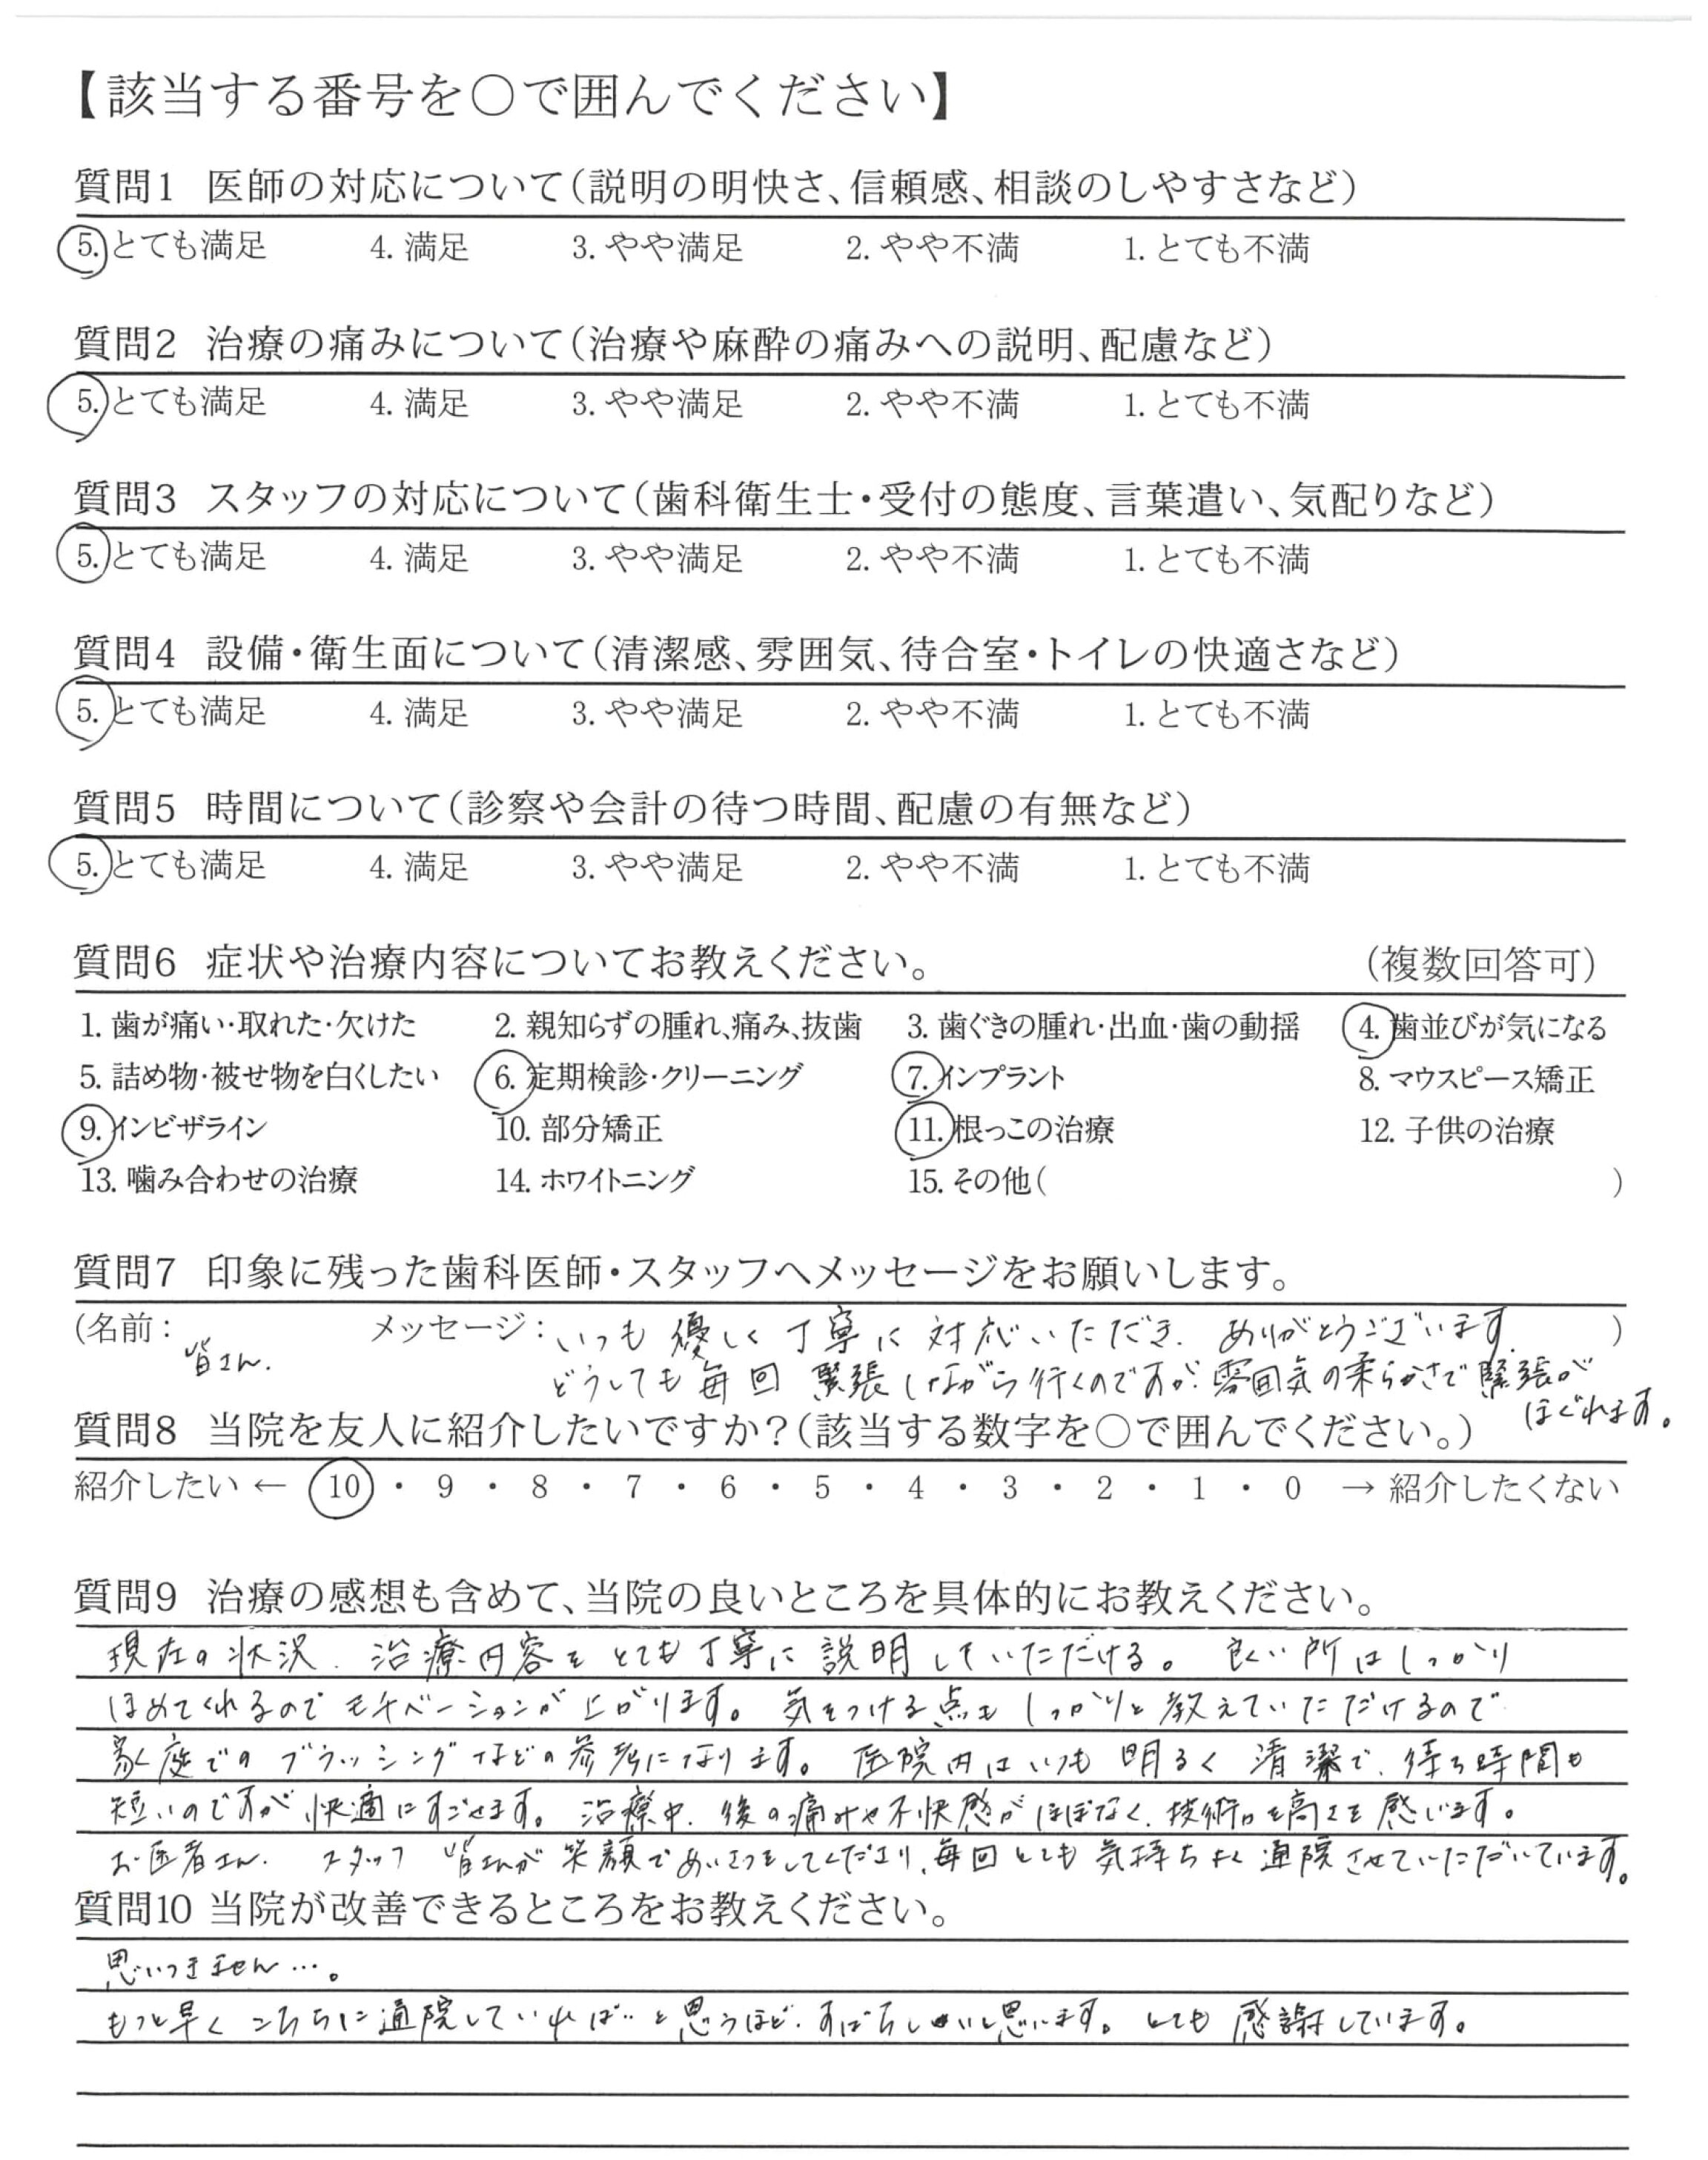 【該当する番号を○で囲んでください】
質問1 医師の対応について(説明の明快さ、信頼感、相談のしやすさなど)
5. とても満足 4. 満足 3. やや満足 2. やや不満 1. とても不満
質問2 治療の痛みについて(治療や麻酔の痛みへの説明、配慮など)
5. とても満足 4. 満足 3. やや満足 2. やや不満 1. とても不満
質問3 スタッフの対応について(歯科衛生士・受付の態度、言葉遣い、気配りなど)
5. とても満足 4. 満足 3. やや満足 2. やや不満 1. とても不満
質問4 設備・衛生面について(清潔感、雰囲気、待合室・トイレの快適さなど)
5. とても満足 4. 満足 3. やや満足 2. やや不満 1. とても不満
質問5 時間について(診察や会計の待つ時間、配慮の有無など)
5. とても満足 4. 満足 3. やや満足 2. やや不満 1. とても不満
質問6 症状や治療内容についてお教えください。 (複数回答可)
1. 歯が痛い・取れた・欠けた 2. 親知らずの腫れ、痛み、抜歯 3. 歯ぐきの腫れ・出血・歯の動揺 4. 歯並びが気になる
5. 詰め物・被せ物を白くしたい 6. 定期検診・クリーニング 7. インプラント 8. マウスピース矯正
9. インビザライン 10. 部分矯正 11. 根っこの治療 12. 子供の治療
13. 噛み合わせの治療 14. ホワイトニング 15. その他( )
質問7 印象に残った歯科医師・スタッフへメッセージをお願いします。
(名前: 皆さん. メッセージ: いつも優しく丁寧に対応いただき、ありがとうございます. )
どうしても毎回緊張しながら行くのですが、雰囲気の柔らかさで緊張が
ほぐれます。
質問8 当院を友人に紹介したいですか?(該当する数字を○で囲んでください。)
紹介したい ← 10 ・ 9 ・ 8 ・ 7 ・ 6 ・ 5 ・ 4 ・ 3 ・ 2 ・ 1 ・ 0 → 紹介したくない
質問9 治療の感想も含めて、当院の良いところを具体的にお教えください。
現在の状況、治療内容をとても丁寧に説明していただける。良い所はしっかり
ほめてくれるのでモチベーションが上がります。気をつける点もしっかりと教えていただけるので
家庭でのブラッシングなどの参考になります。医院内はいつも明るく清潔で、待ち時間も
短いのですが快適にすごせます。治療中、後の痛みや不快感がほぼなく、技術力を高さを感じます。
お医者さん、スタッフ皆さんが笑顔であいさつをしてくださり、毎回とても気持ちよく通院させていただいています。
質問10 当院が改善できるところをお教えください。
思いつきません…。
もっと早くこちらに通院していれば…と思うほど、すばらしいと思います。とても感謝しています。